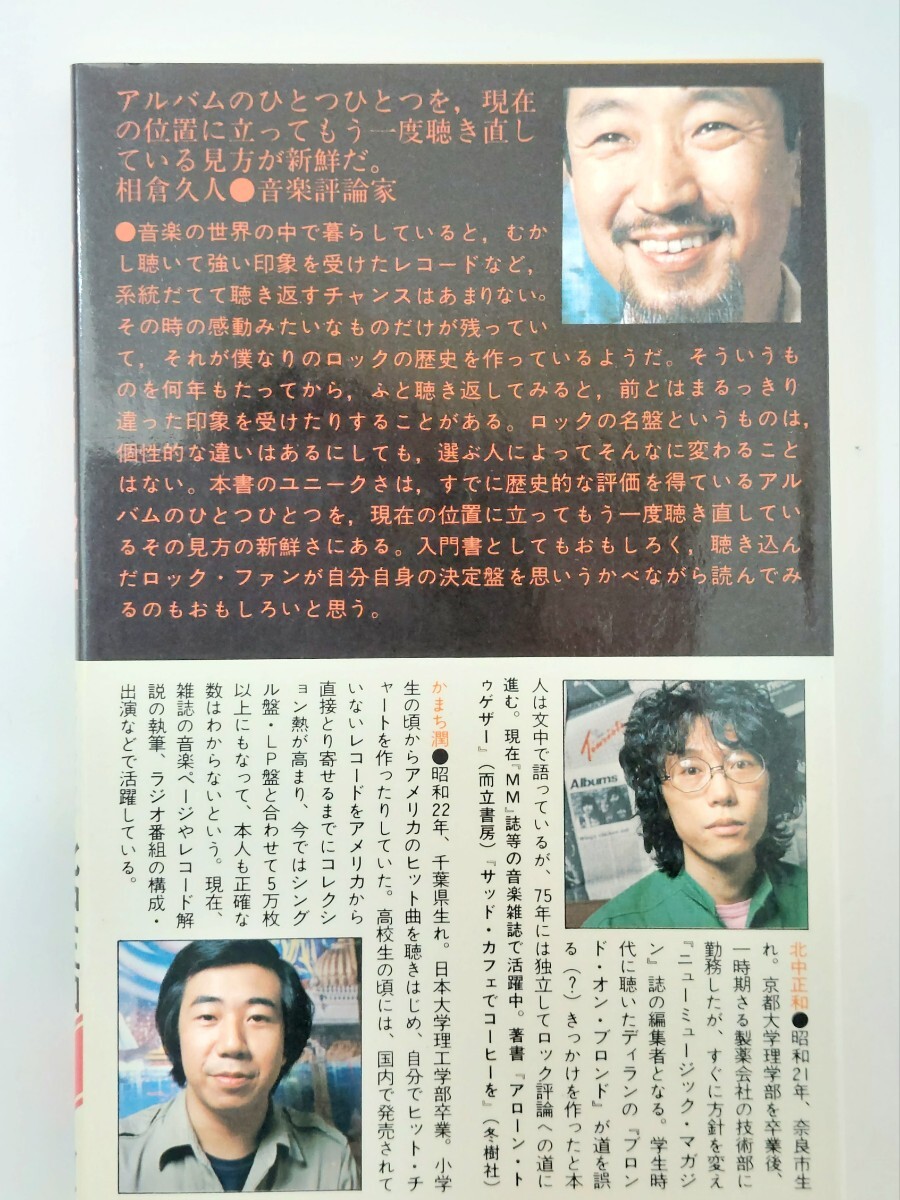 アルバムのひとつひとつを，現在
の位置に立ってもう一度聴き直し
ている見方が新鮮だ。
相倉久人●音楽評論家
●音楽の世界の中で暮らしていると，むか
し聴いて強い印象を受けたレコードなど，
系統だてて聴き返すチャンスはあまりない。
その時の感動みたいなものだけが残ってい
て，それが僕なりのロックの歴史を作っているようだ。そういうも
のを何年もたってから，ふと聴き返してみると，前とはまるっきり
違った印象を受けたりすることがある。ロックの名盤というものは，
個性的な違いはあるにしても，選ぶ人によってそんなに変わること
はない。本書のユニークさは，すでに歴史的な評価を得ているアル
バムのひとつひとつを，現在の位置に立ってもう一度聴き直してい
るその見方の新鮮さにある。入門書としてもおもしろく，聴き込ん
だロック・ファンが自分自身の決定盤を思いうかべながら読んでみ
るのもおもしろいと思う。
北中正和●昭和21年、奈良市生
れ。京都大学理学部を卒業後、
一時期さる製薬会社の技術部に
勤務したが、すぐに方針を変え
『ニューミュージック・マガジ
ン』誌の編集者となる。学生時
代に聴いたディランの『ブロン
ド・オン・ブロンド』が道を誤
る（？）きっかけを作ったと本
人は文中で語っているが、75年には独立してロック評論への道に
進む。現在『ＭＭ』誌等の音楽雑誌で活躍中。著書『アローン・ト
ゥゲザー』（而立書房）『サッド・カフェでコーヒーを』（冬樹社）
かまち潤●昭和22年、千葉県生れ。日本大学理工学部卒業。小学
生の頃からアメリカのヒット曲を聴きはじめ、自分でヒット・チ
ャートを作ったりしていた。高校生の頃には、国内で発売されて
いないレコードをアメリカから
直接とり寄せるまでにコレクシ
ョン熱が高まり、今ではシング
ル盤・ＬＰ盤と合わせて５万枚
以上にもなって、本人も正確な
数はわからないという。現在、
雑誌の音楽ページやレコード解
説の執筆、ラジオ番組の構成・
出演などで活躍している。
Albums